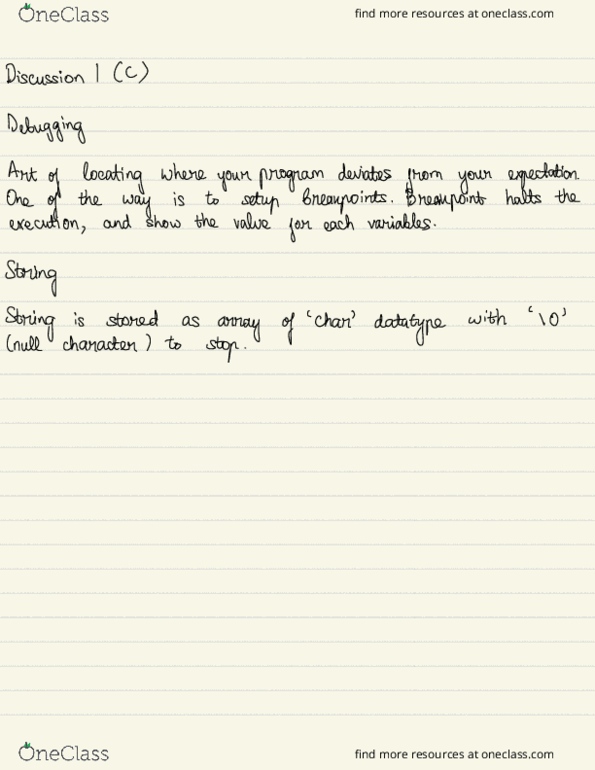 OneClass find more resources at oneclass.com
Discussion 1 (C)
Debugging
Art of locating where your program deviates from your expectation
One of the way is to setup breakpoints. Breakpoint halts the
execution, and show the value for each variables.
String
String is stored as array of 'char' datatype with '\0'
(null character) to stop.
OneClass find more resources at oneclass.com